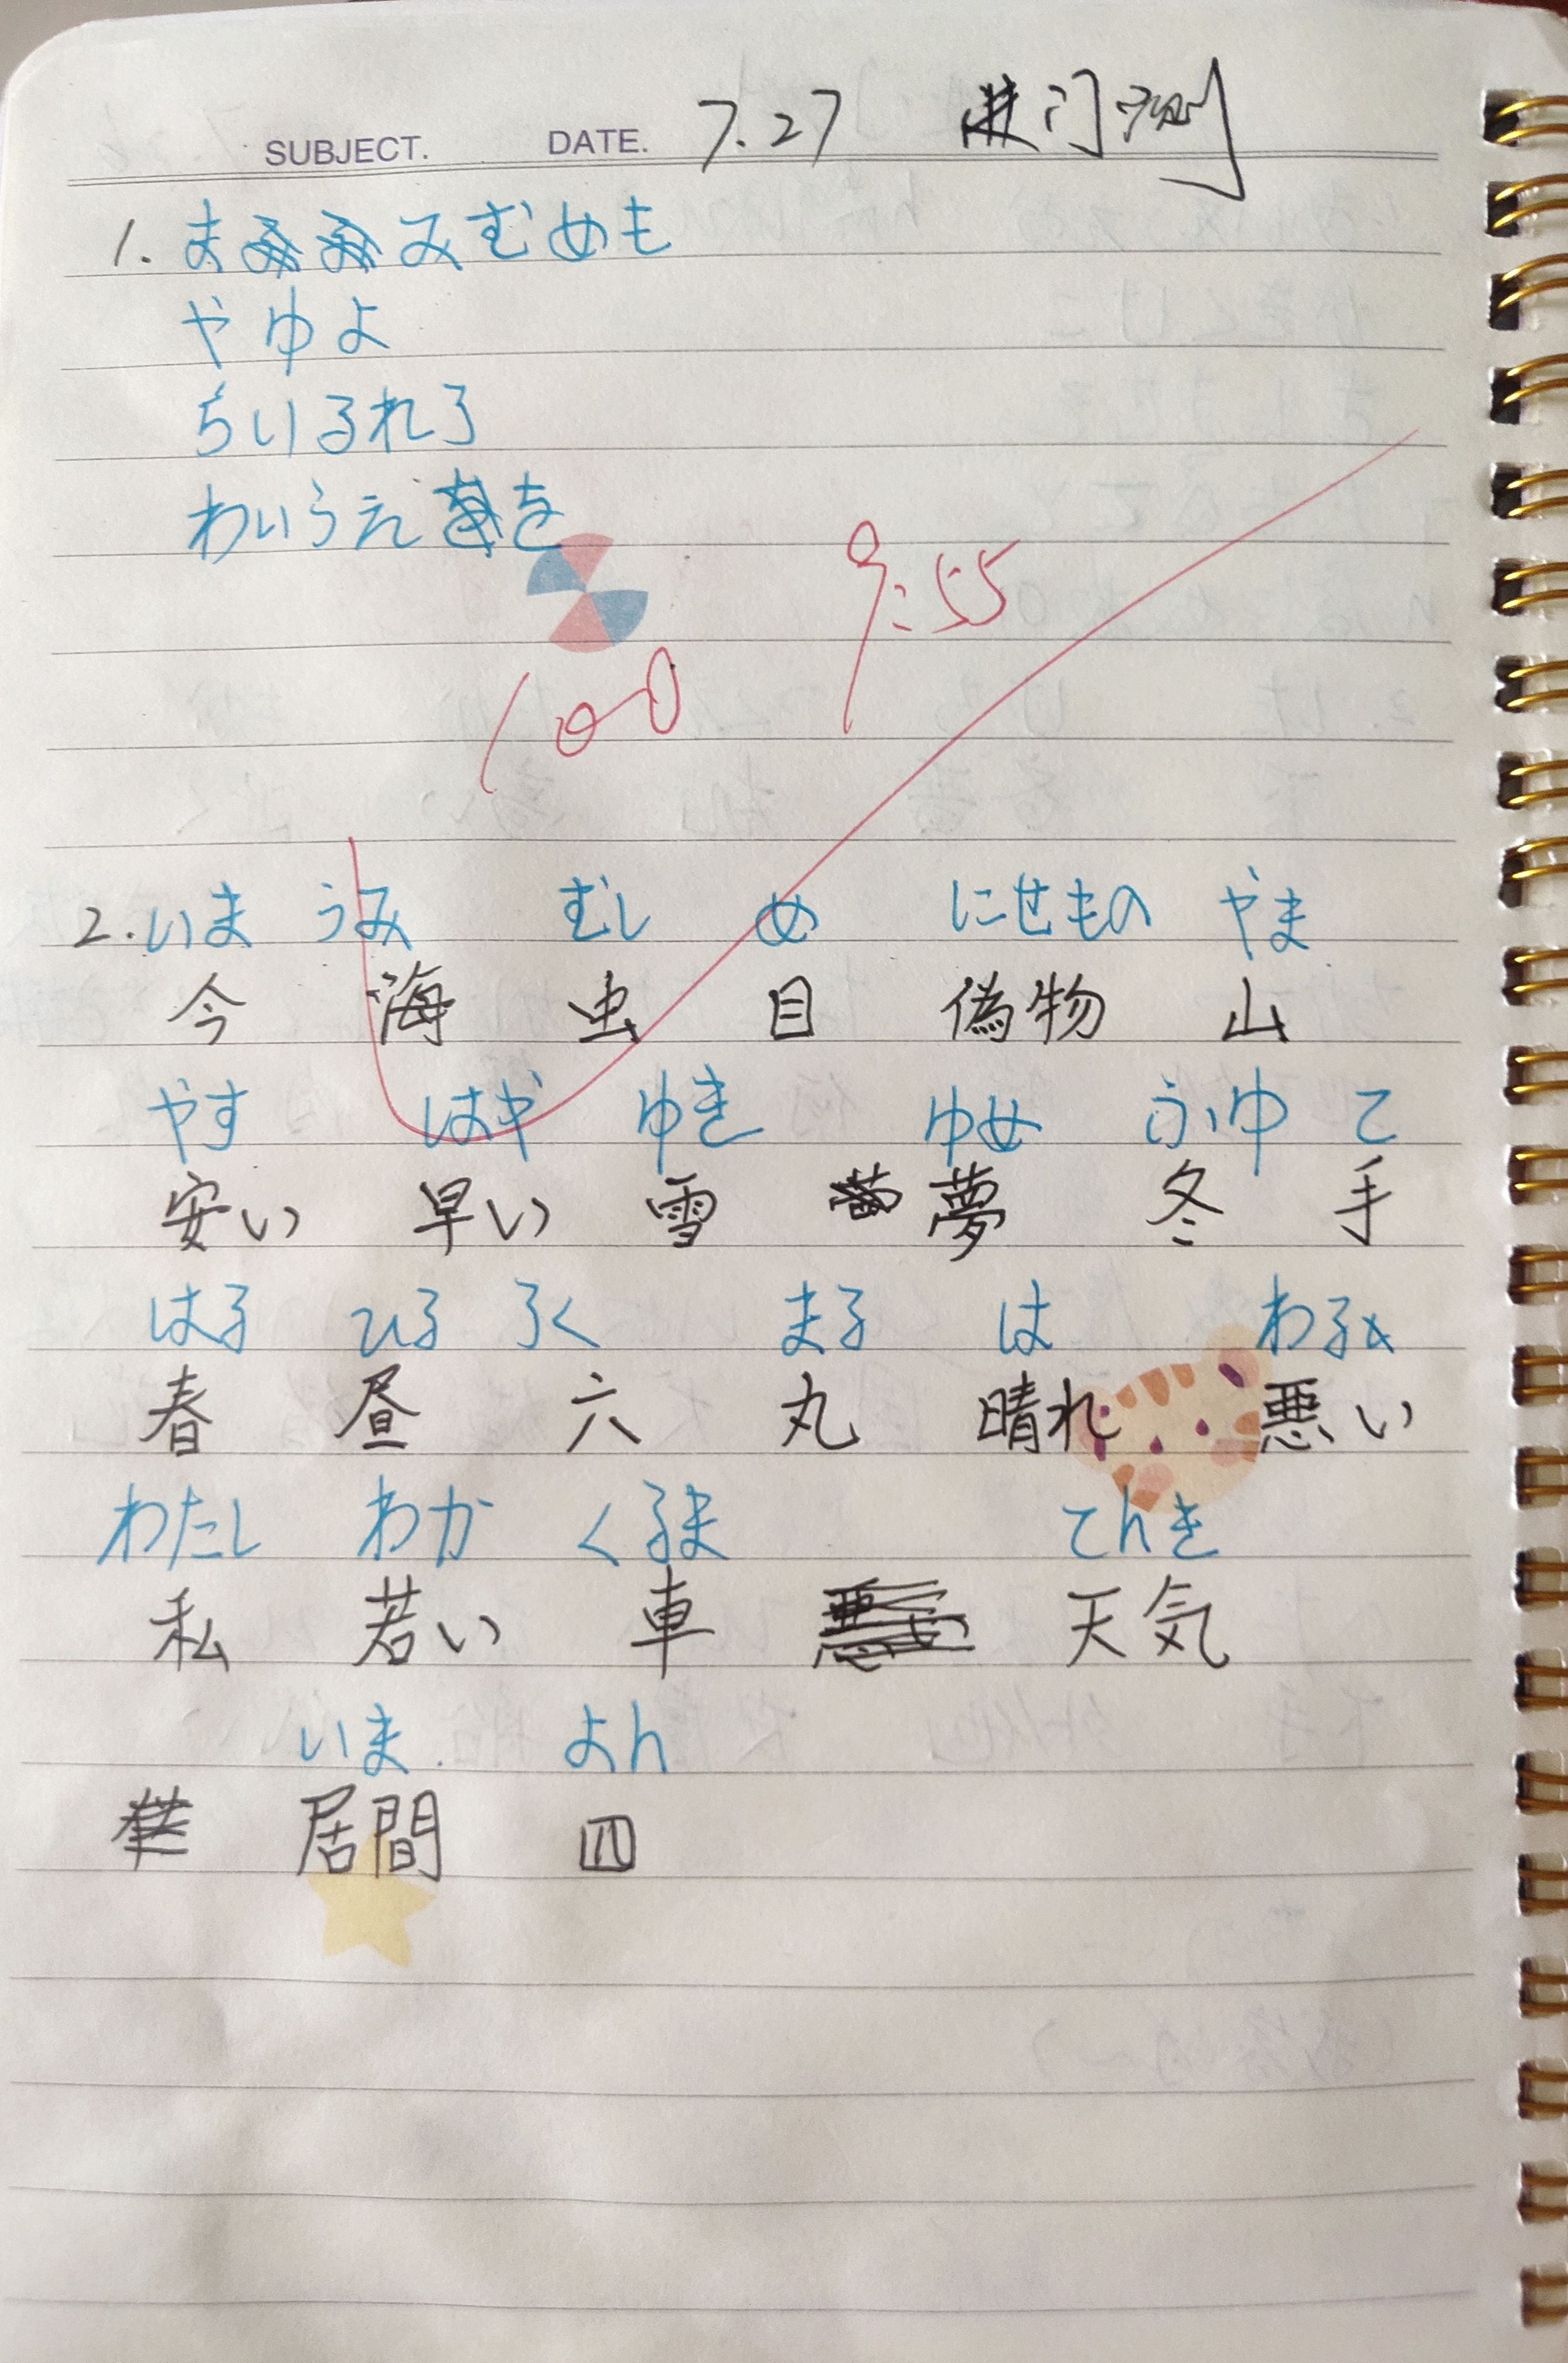 SUBJECT. DATE. 7.27 进门测
1. ま みむめも
やゆよ
らりるれろ
わいうえ を
9:55
100
2. いま うみ むし め にせもの やま
今 海 虫 目 偽物 山
やす はや ゆき ゆめ ふゆ て
安い 早い 雪 夢 冬 手
はる ひる ろく まる は わる
春 昼 六 丸 晴れ 悪い
わたし わか くるま てんき
私 若い 車 天気
いま よん
居間 四